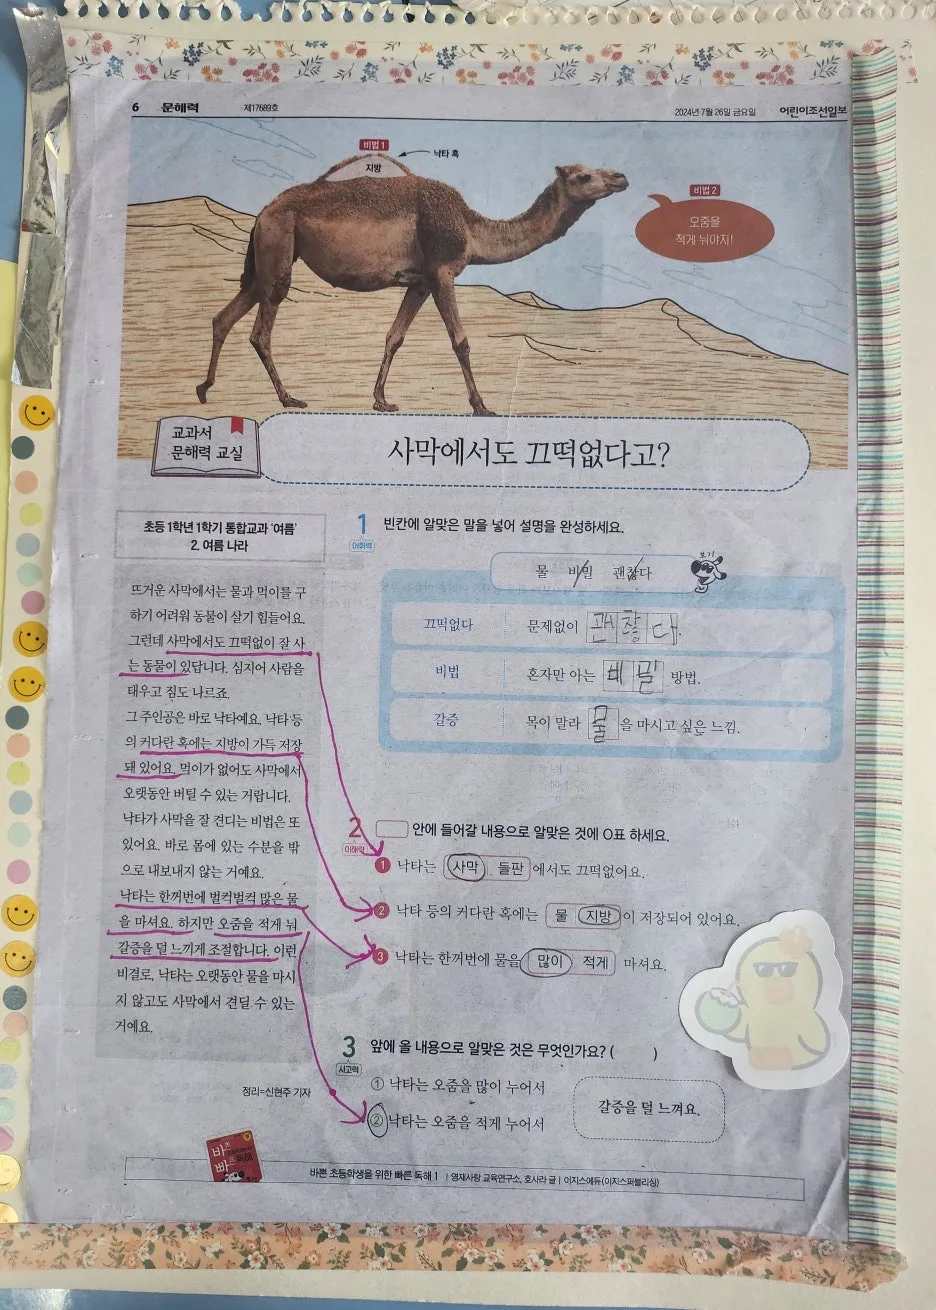 6 문해력 제17689호 2024년 7월 26일 금요일 어린이조선일보
비법 1
낙타 혹
지방
비법 2
오줌을
적게 눠야지!
교과서
문해력 교실
사막에서도 끄떡없다고?
초등 1학년 1학기 통합교과 ‘여름’
2. 여름 나라
뜨거운 사막에서는 물과 먹이를 구
하기 어려워 동물이 살기 힘들어요.
그런데 사막에서도 끄떡없이 잘 사
는 동물이 있답니다. 심지어 사람을
태우고 짐도 나르죠.
그 주인공은 바로 낙타예요. 낙타 등
의 커다란 혹에는 지방이 가득 저장
돼 있어요. 먹이가 없어도 사막에서
오랫동안 버틸 수 있는 거랍니다.
낙타가 사막을 잘 견디는 비법은 또
있어요. 바로 몸에 있는 수분을 밖
으로 내보내지 않는 거예요.
낙타는 한꺼번에 벌컥벌컥 많은 물
을 마셔요. 하지만 오줌을 적게 눠
갈증을 덜 느끼게 조절합니다. 이런
비결로, 낙타는 오랫동안 물을 마시
지 않고도 사막에서 견딜 수 있는
거예요.
정리=신현주 기자
1 빈칸에 알맞은 말을 넣어 설명을 완성하세요.
어휘력
보기
물 비밀 괜찮다
끄떡없다 문제없이 괜찮다.
비법 혼자만 아는 비밀 방법.
갈증 목이 말라 물을 마시고 싶은 느낌.
2 안에 들어갈 내용으로 알맞은 것에 O표 하세요.
이해력
1 낙타는 사막 들판 에서도 끄떡없어요.
2 낙타 등의 커다란 혹에는 물 지방 이 저장되어 있어요.
3 낙타는 한꺼번에 물을 많이 적게 마셔요.
3 앞에 올 내용으로 알맞은 것은 무엇인가요? ( )
사고력
① 낙타는 오줌을 많이 누어서
② 낙타는 오줌을 적게 누어서
갈증을 덜 느껴요.
바쁜
빠른
바쁜 초등학생을 위한 빠른 독해 1 | 영재사랑 교육연구소, 호사라 글 | 이지스에듀(이지스퍼블리싱)